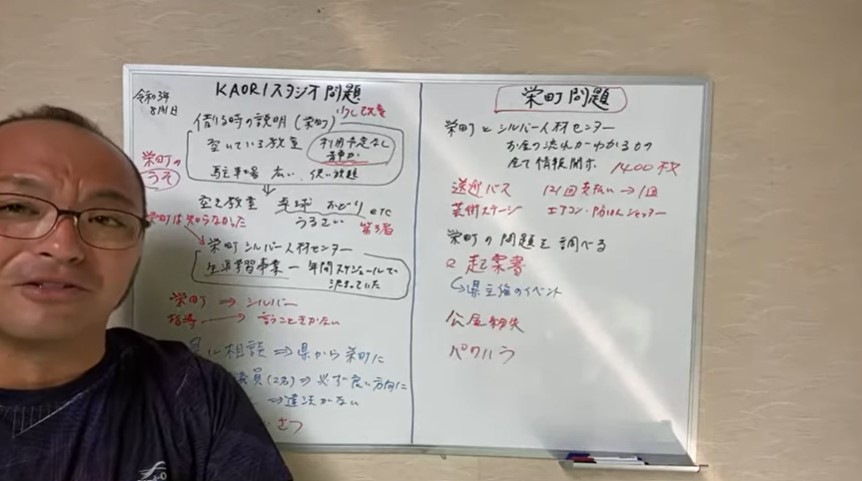 令和3年
8月1日
KAORIスタジオ問題
少して改善
借りる時の説明(栄町)
空いている教室
利用予定なし
静か
駐車場 広い 使い放題
栄町の
うそ
↓
空き教室 卓球 おどり etc
うるさい
栄町は知らなかった
栄町シルバー人材センター
生涯学習事業 ー 年間スケジュールで
決まっていた
栄町 ⇒ シルバー
指導 → 言うこときかない
相談 ⇒ 県から栄町に
議員(2名) ⇒ 必ず良い方向に
違法がない
栄町問題
栄町とシルバー人材センター
お金の流れがわかるもの
全て情報開示 1400枚
送迎バス 121回支払い → 1回
芸術ステージ エアコン・防火シャッター
栄町の問題を調べる
起案書
県主催のイベント
公金紛失
パワハラ